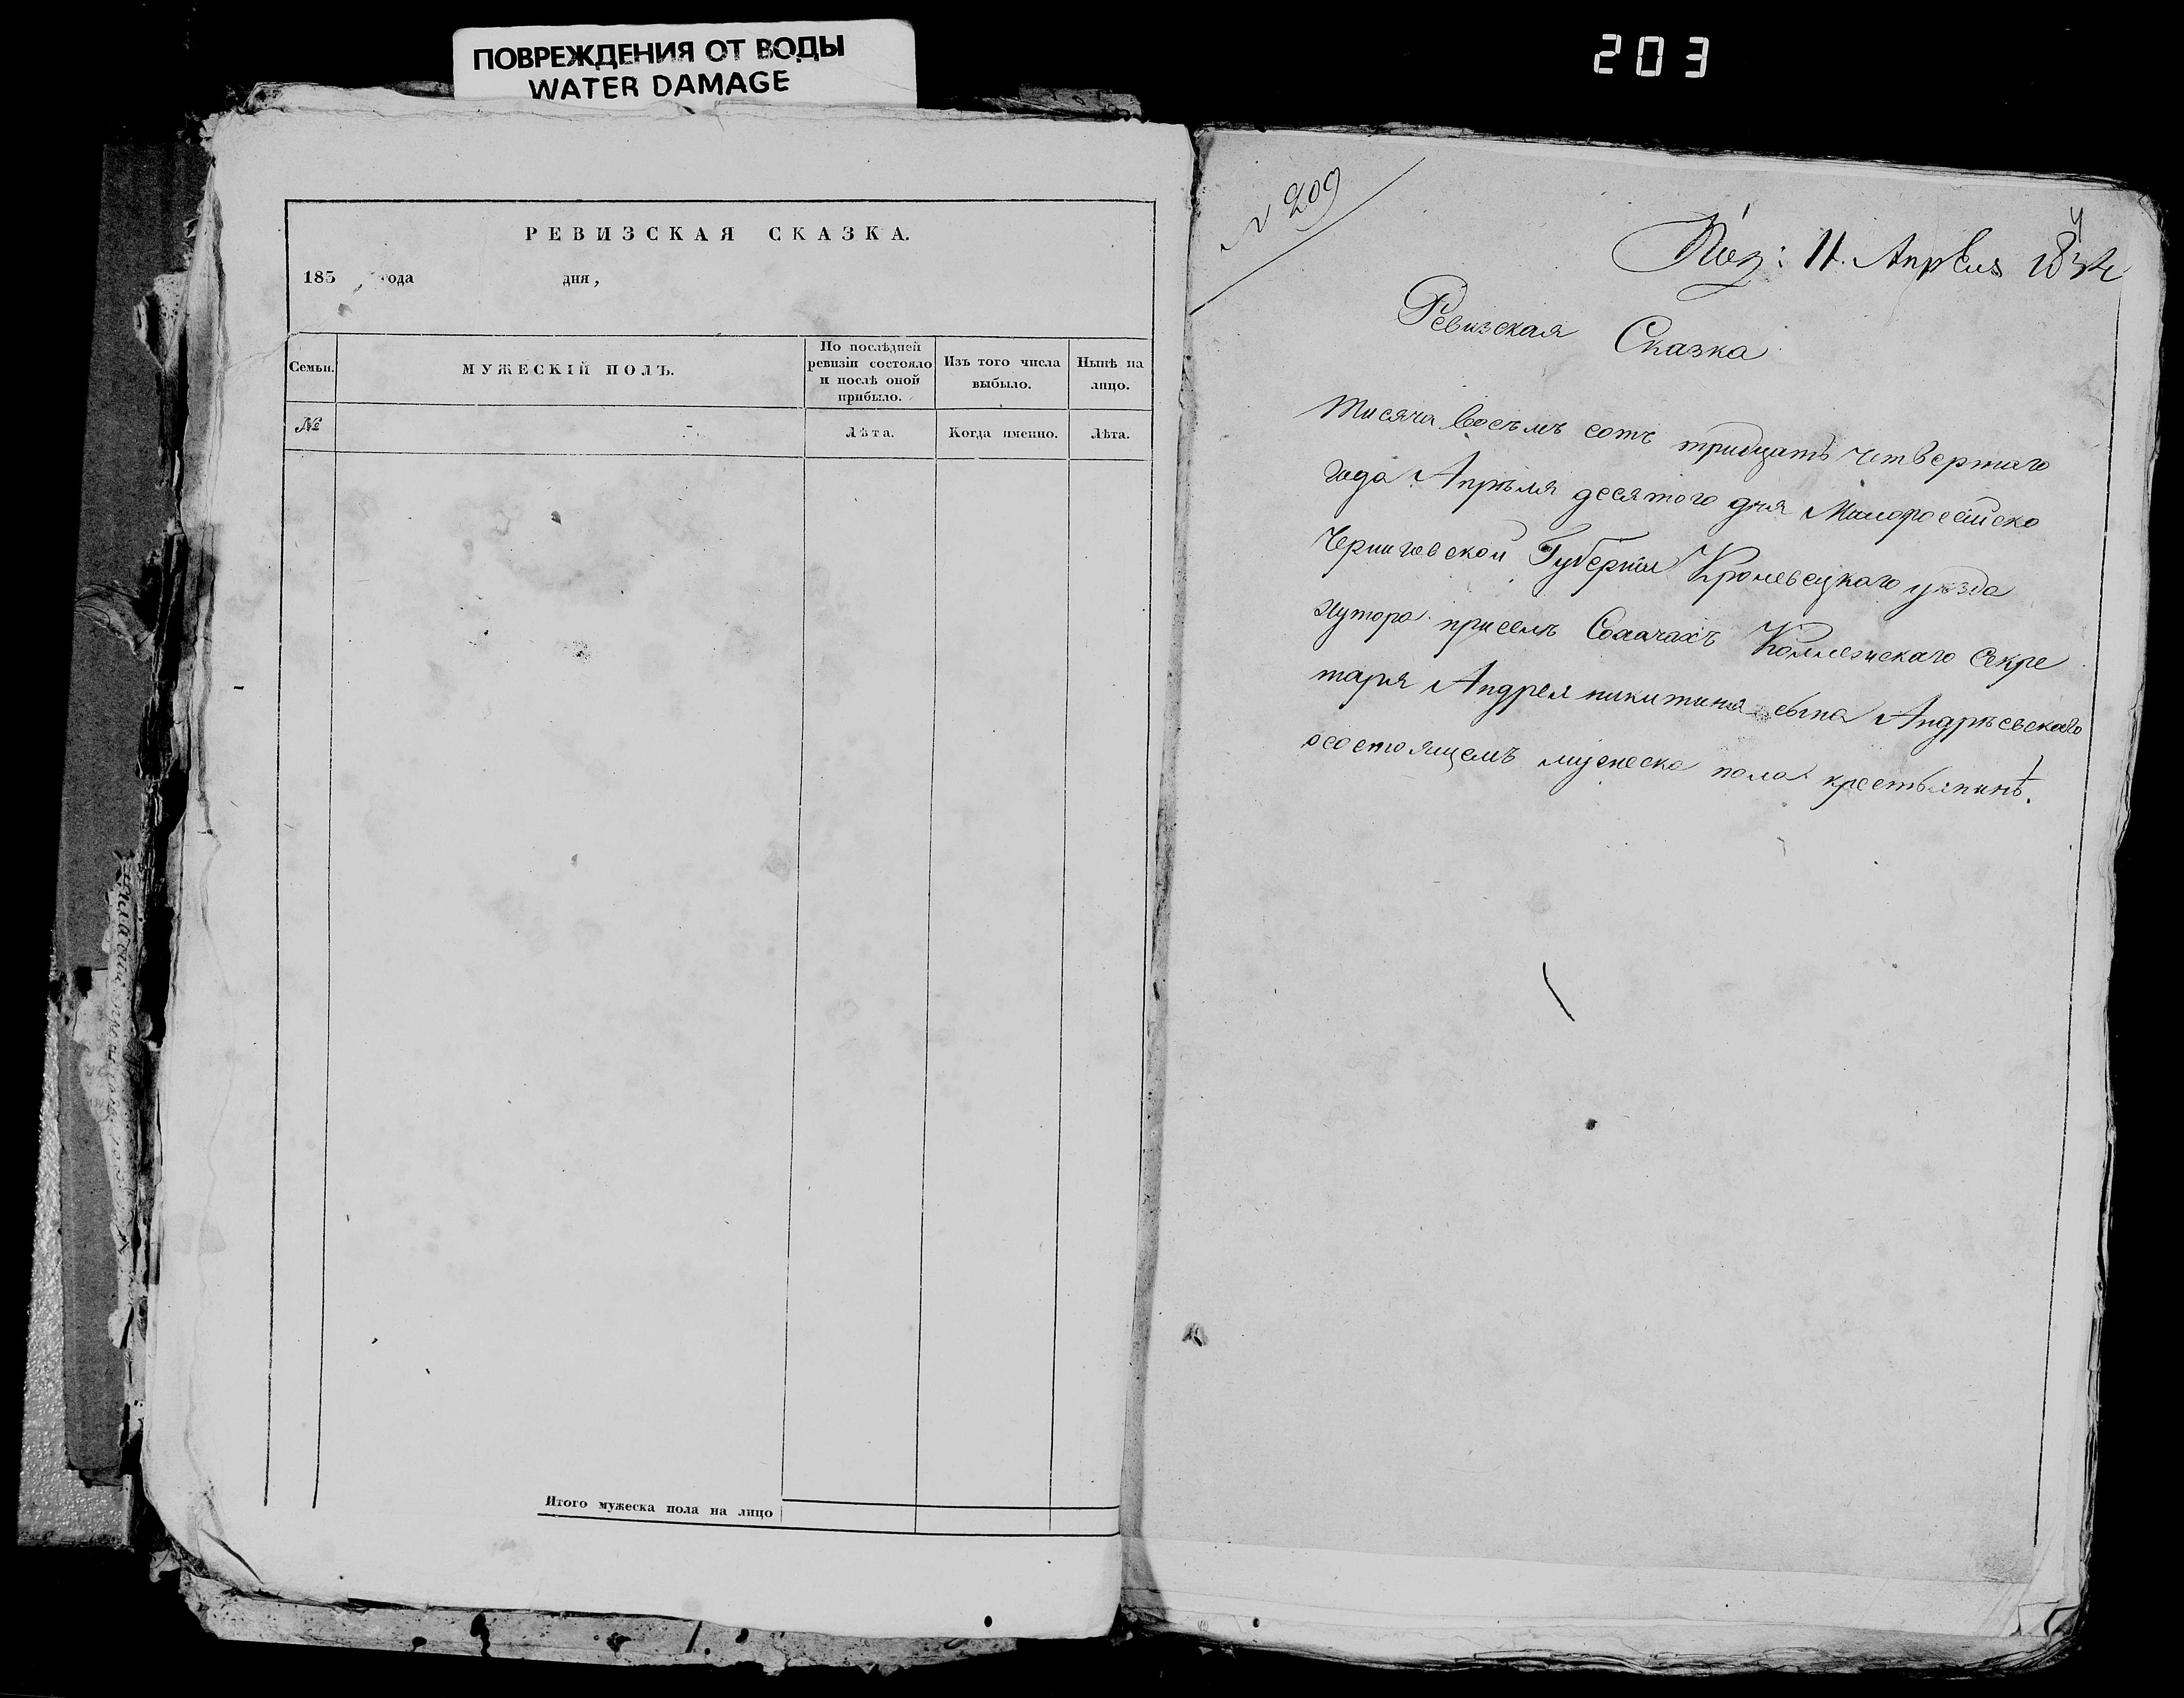 ПОВРЕЖДЕНИЯ ОТ ВОДЫ
WATER DAMAGE
203
РЕВИЗСКАЯ СКАЗКА.
183 года дня,
Семьи.
МУЖЕСКІЙ ПОЛЪ.
По послѣдней
ревизіи состояло
и послѣ оной
прибыло.
Изъ того числа
выбыло.
Нынѣ на
лицо.
№
Лѣта.
Когда именно.
Лѣта.
Итого мужеска пола на лицо
N 209
11. Апрѣля 1834
Ревизская Сказка
тисяча восемъ сотъ тридцать четвертаго
года Апрѣля десятого дня Малоросейско
Черниговской Губерніи Кролевецкаго уезда
Хутора приселѣ Сохачахъ Коллежскаго Секре
таря Андрея никитина сына Андрѣевскаго
осостоящемъ мужеска пола крестьянинѣ.